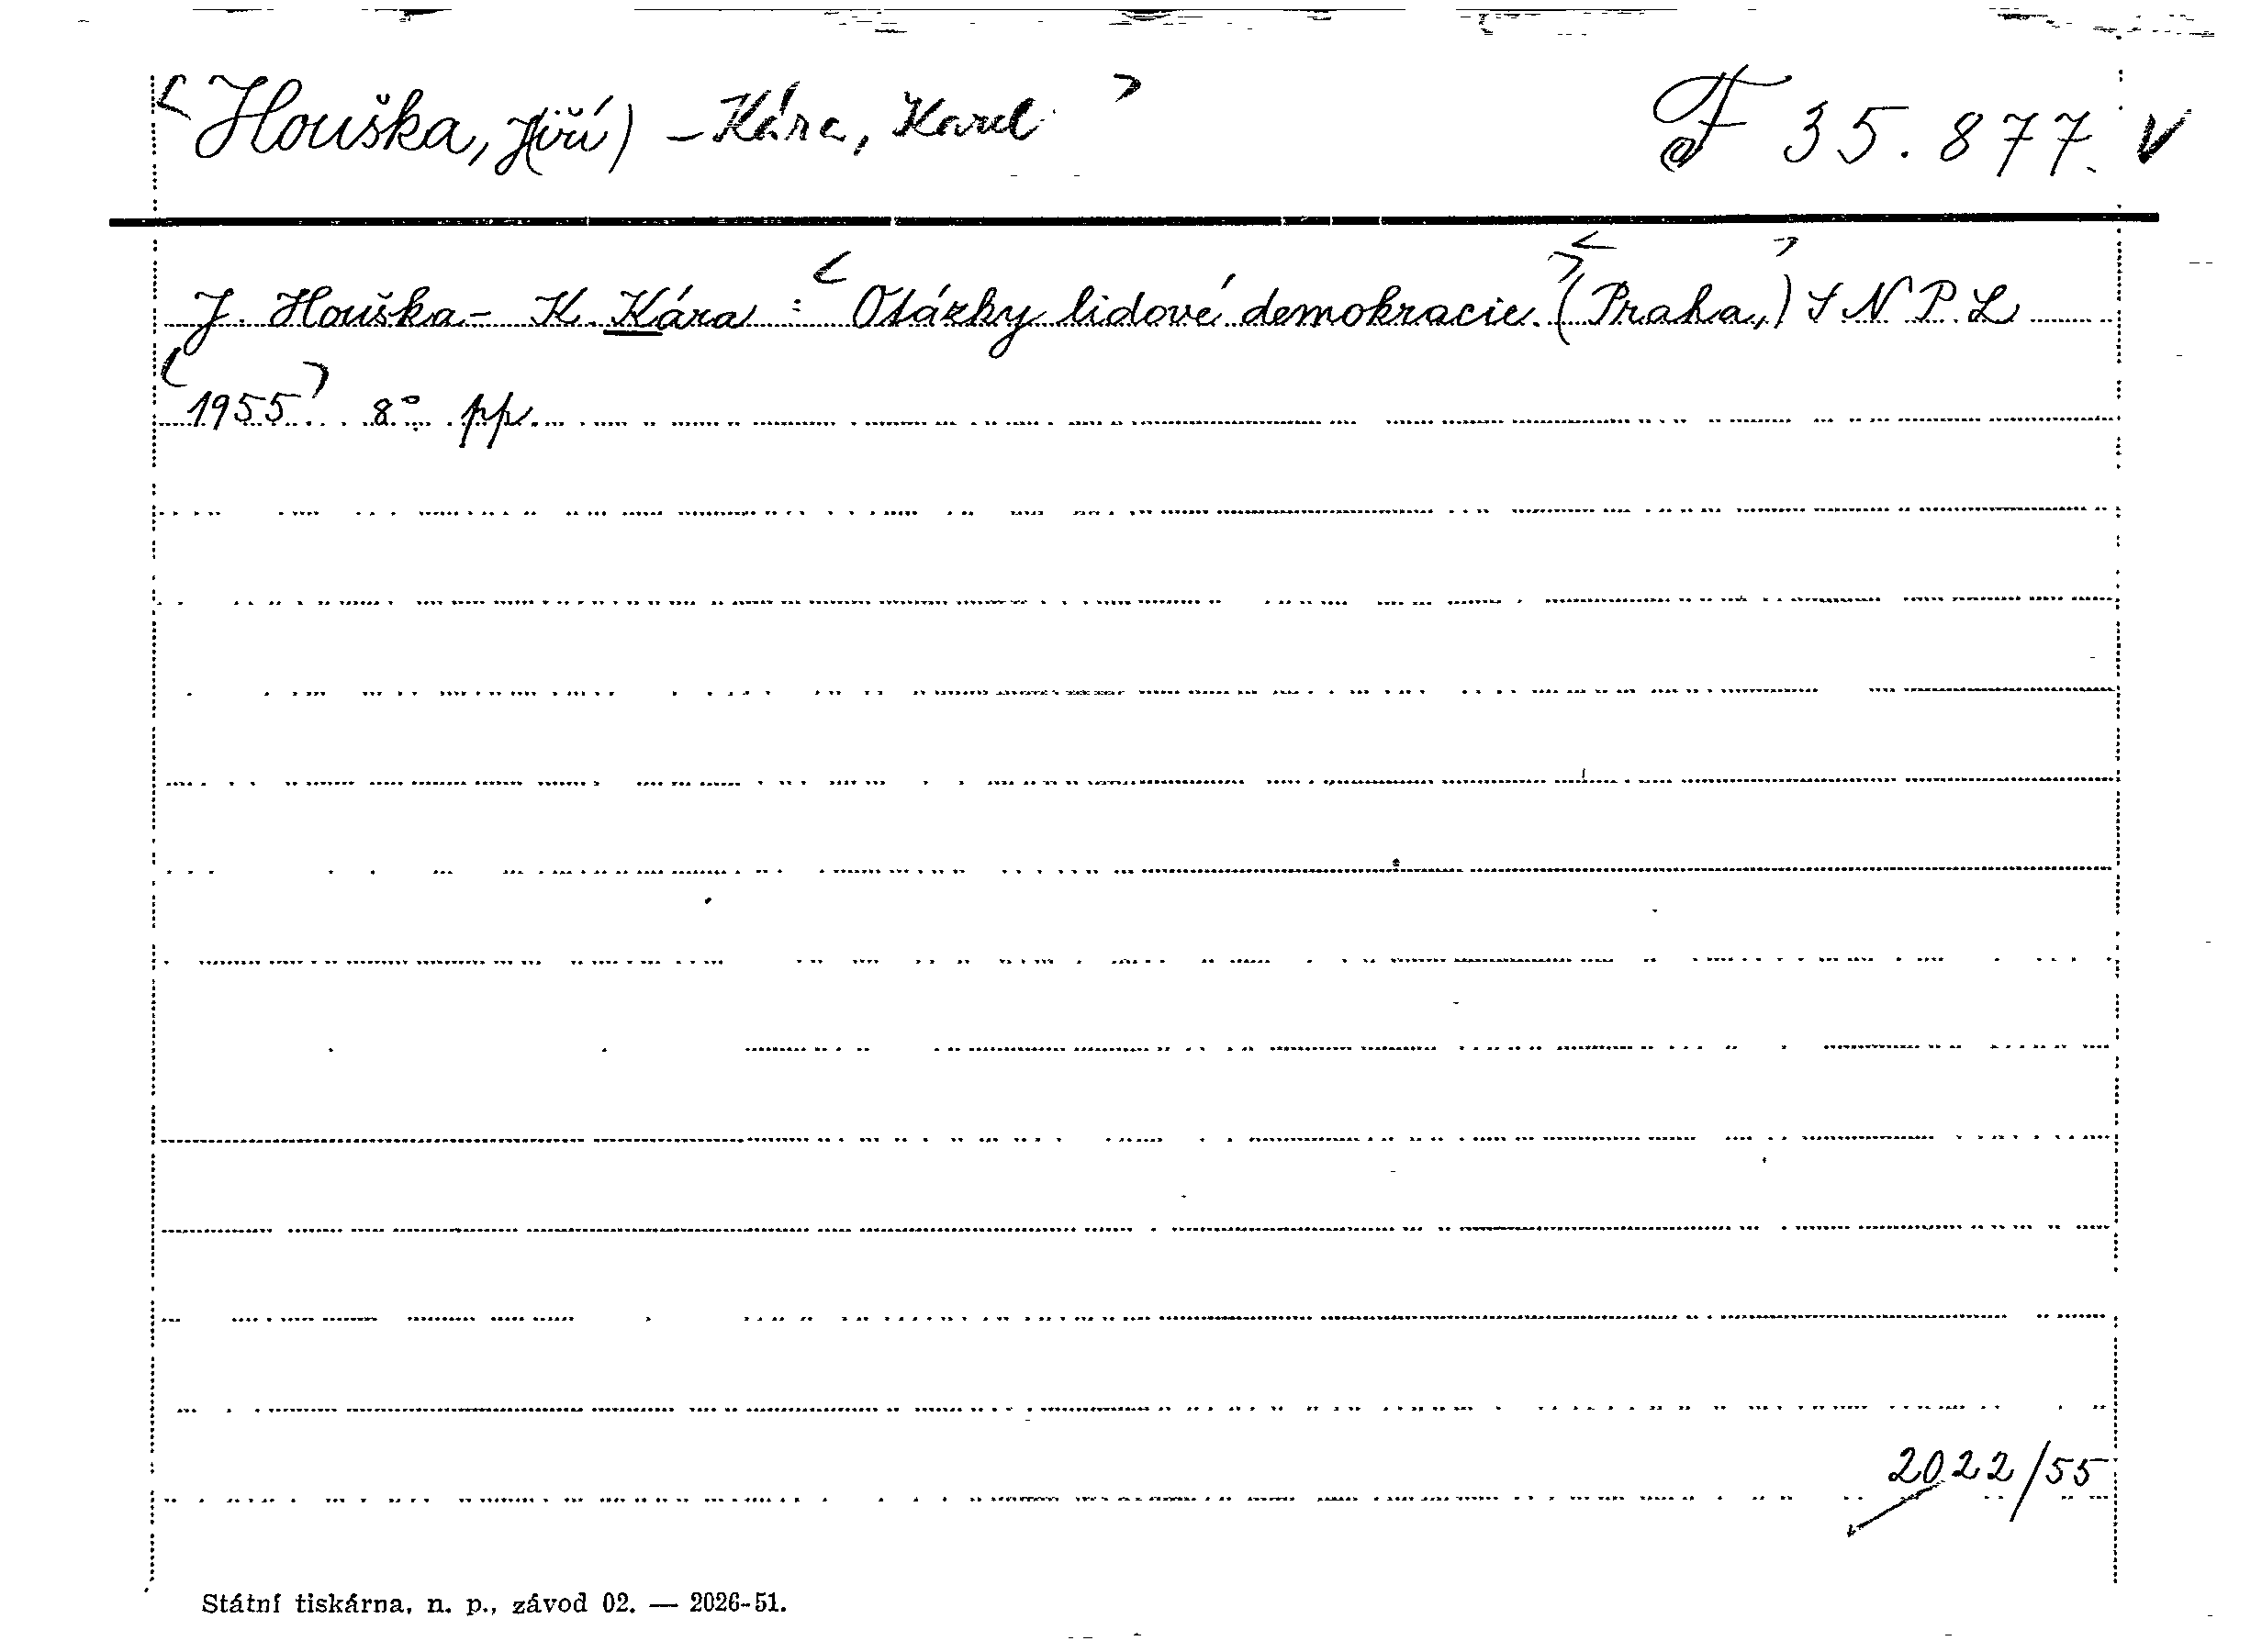 <Houška, J(iří) - Kára, Karel> F 35.877. V
J. Houška - K. Kára : <Otázky lidové demokracie.> <(Praha,)> SNPL
<1955> 8° pp.
2022/55
Státní tiskárna, n. p., závod 02. — 2026-51.